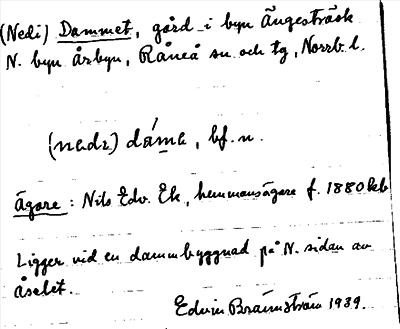 (Nedi) Dammet, gård i byn Ängesträsk
N. byn Årbyn, Råneå sn och tg, Norrb. l.
(nedɩ) dámɐ, bf. n.
Ägare: Nils Edv. Ek, hemmansägare f. 1880
Ligger vid en dammbyggnad på N. sidan av
åselet.
Edvin Brännström 1939.